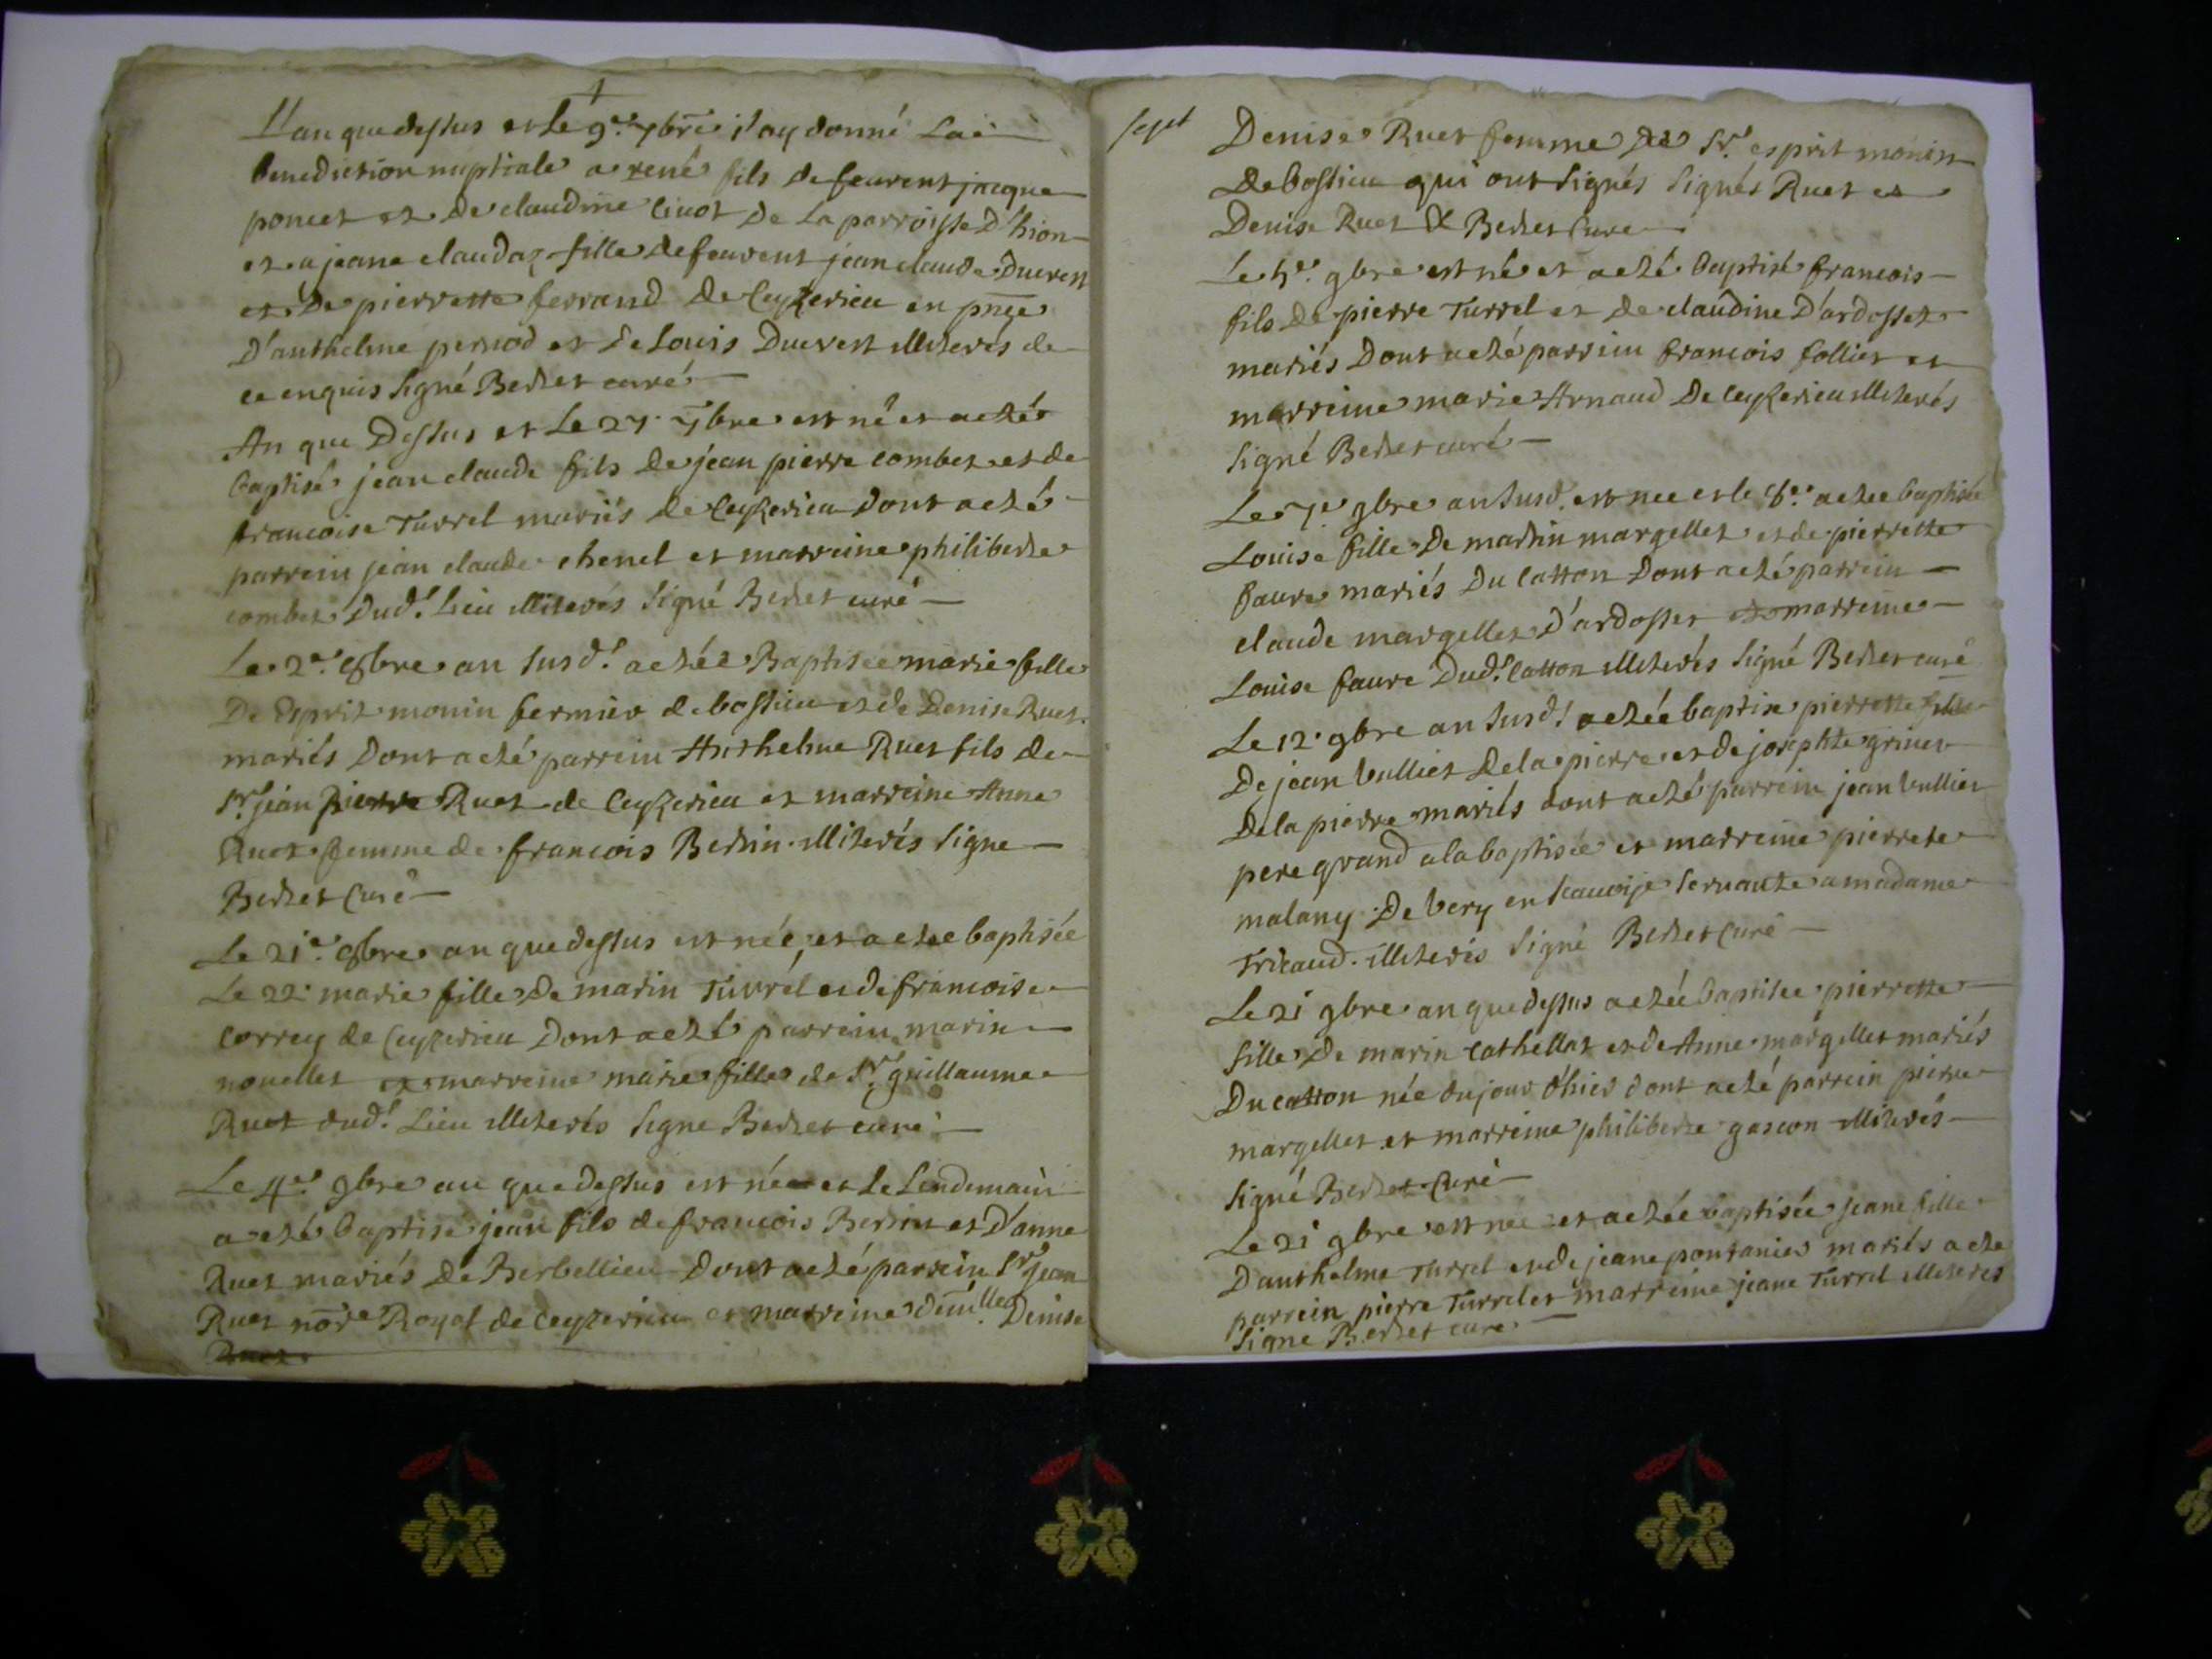 L'an que dessus et le 9e. 7bre j'ay donné La
benediction nuptiale a rené fils de feu vent jacque
poncet et de claudine Cinot de La parroisse D'hion
et a jeane claudaz fille de feu vent jean claude Ducrest
et de pierrette ferrand de Ceyzerieu en pnce
D'anthelme pernod et de Louis Ducrest illiterés de
ce enquis signé Bertet curé
An que Dessus et Le 27. 7bre est né et a eté
baptisé jean claude fils de jean pierre combet et de
francoise Turrel mariés de Ceyzerieu Dont a eté
parrein jean claude chenel et marreine philiberte
combet Dudt. Lieu illiterés signé Bertet curé
Le 2e. 8bre an susdt. a etée Baptisée marie fille
De Esprit monin fermier de bossieu et de Denise Ruet
mariés Dont a eté parrein Anthelme Ruet fils de
sr. jean pierre Ruet de Ceyzerieu et marreine Anne
Ruet femme de francois Bertin illiterés signe
Bertet Curé
Le 21e. 8bre an que dessus est née, et a etee baptisée
Le 22. marie fille de marin Turrel et de francoise
correy de Ceyzerieu Dont a eté parrein marin
nouellet et marreine marie fille de sr. guillaume
Ruet dudt. Lieu illiterés signe Bertet curé
Le 4e. 9bre an que dessus est né et le Lendemain
a eté baptisé jean fils de francois Bertin et D'anne
Ruet mariés de Berbellieu Dont a eté parrein sr jean
Ruet nore Royal de Ceyzerieu et marreine demlle. Denise
Ruet
sept
Denise Ruet femme de sr. esprit monin
de bossieu qui ont signés signés Ruet et
Denise Ruet & Bertet Cure
Le 5e. 9bre est né et a eté baptisé francois
fils de pierre Turrel et de claudine D'ardosset
mariés Dont a eté parrein francois folliet et
marreine marie Arnaud De Ceyzerieu illiterés
signé Bertet curé
Le 7e 9bre an susd. est nee et le 8e. a etee baptisée
Louise fille De martin margellet et de pierrette
faure mariés Du Catton Dont a eté parrein
claude margellet D'ardosset et marreine
Louise faure Dudt. Catton illiterés signé Bertet curé
Le 12. 9bre an susdt. a etée baptise pierrette fille
De jean Vulliet De la pierre et de josephte griner
De la pierre mariés dont a eté parrein jean Vulliet
pere grand a la baptisée et marreine pierrete
malany De Very en sauoije servante a madame
Tricaud illiterés signé Bertet Curé
Le 21 9bre an que dessus a etée baptisee pierrette
fille De marin Cathellat et de Anne margellet mariés
Du catton née du jour d'hier dont a eté parrein pierre
margellet et marreine philiberte gascon illiterés
signé Bertet Curé
Le 21 9bre est nee et a etée baptisée jeane fille
D'anthelme Turrel et de jeane pontanier mariés a ete
parrein pierre Turrel et marreine jeane Turrel illiteres
signe Bertet cure